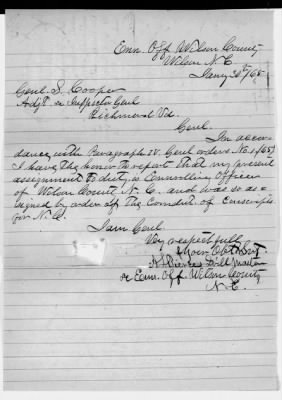 Enr. Off Wilson County
Wilson N.C.
Jany 30th/65
Genl. S. Cooper
Adjt & Inspector Genl
Richmond Va.
Genl.
In accor-
dance with Paragraph IV. Genl orders No. 1 (65)
I have the honor to report that my present
assignment to duty is Enrolling Officer
of Wilson County N.C. and was so as-
signed by order of the Comdt. of Conscripts
for N.C.
I am Genl.
Very respectfull
Your Obt Svt.
Drill Master
& Enr. Off. Wilson County
N.C.